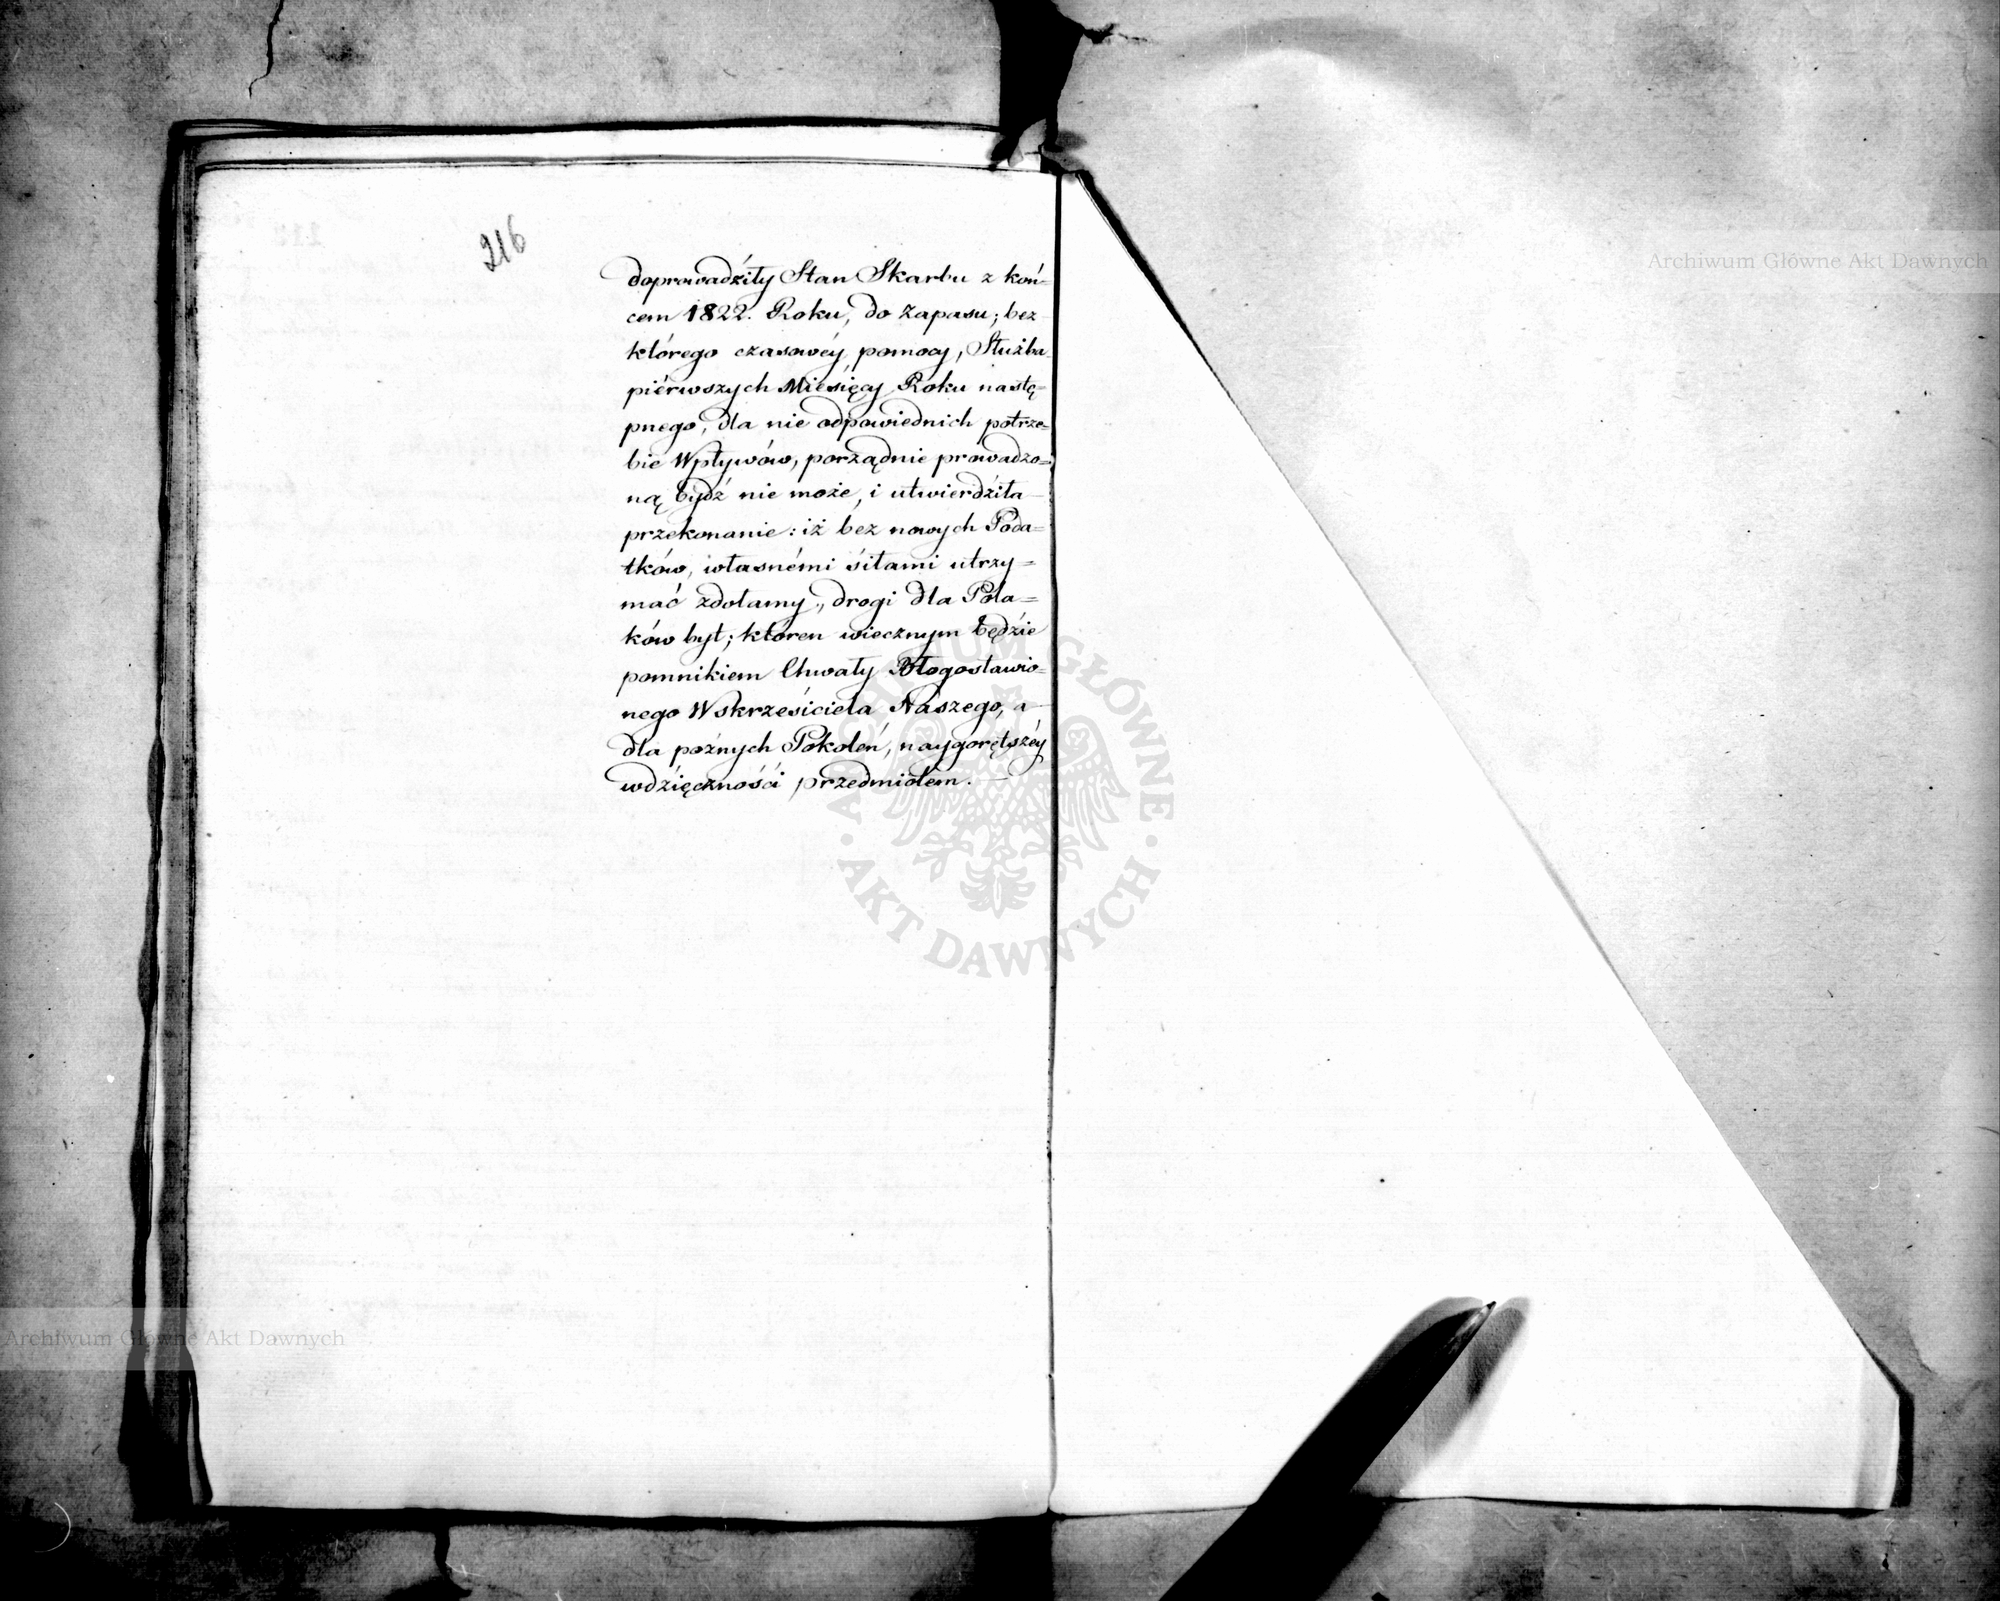 216
doprowadziły Stan Skarbu z koń=
cem 1822. Roku, do Zapasu; bez
którego czasowéy pomocy, Służba
piérwszych Miesięcy Roku nastę=
pnego, dla nie odpowiednich potrze=
bie Wpływów, porządnie prowadzo=
ną bydź nie może, i utwierdziła
przekonanie: iż bez nowych Poda=
tków, własnémi siłami utrzy=
mać zdołamy, drogi dla Pola=
ków byt; któren wiecznym będzie
pomnikiem Chwały Błogosławio=
nego Wskrzesiciela Naszego, a
dla poźnych Pokoleń, naygorętszéy
wdzięczności przedmiotem. —
Archiwum Główne Akt Dawnych
ARCHIWUM GŁÓWNE
· AKT DAWNYCH ·
Archiwum Główne Akt Dawnych